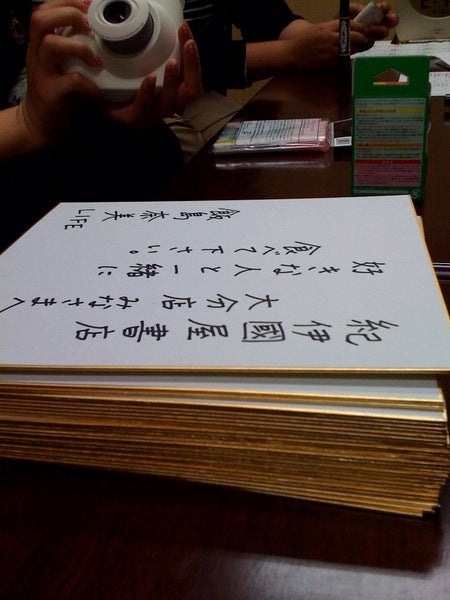 紀伊國屋書店
大分店 みなさまへ
好きな人と一緒に
食べて下さい。
飯島奈美
LIFE